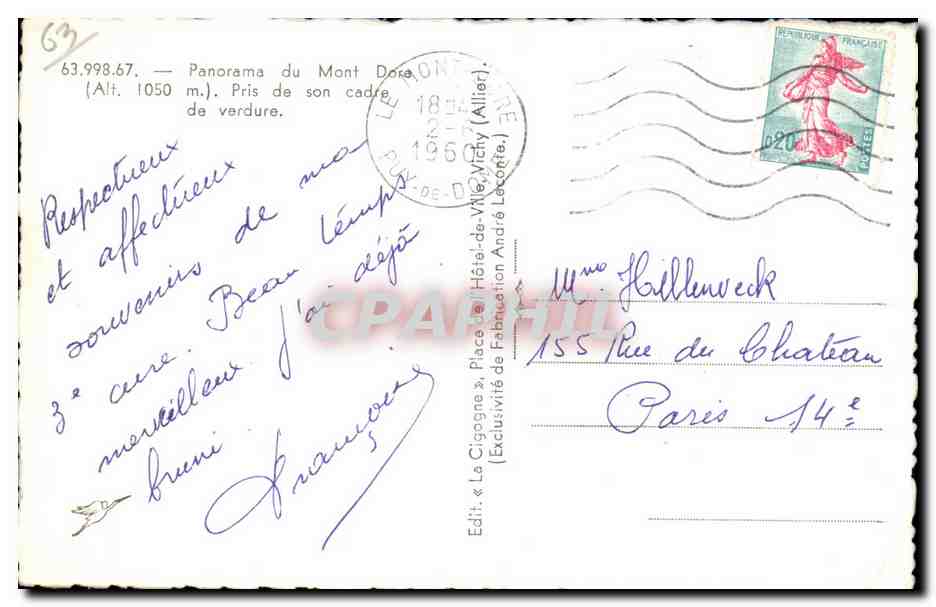 63
63.998.67. — Panorama du Mont Dore
(Alt. 1050 m.). Pris de son cadre
de verdure.
LE MONT-DORE
18H
1960
PUY-DE-DOME
REPUBLIQUE FRANÇAISE
0,20
POSTES
Respectueux
et affectueux
souvenirs de ma
3e cure. Beau temps
merveilleux. J'ai déjà
bruni.
Françoise
Edit. « La Cigogne », Place de l'Hôtel-de-Ville, Vichy (Allier).
(Exclusivité de Fabrication André Leconte.)
Mme Hillenveck
155 Rue du Château
Paris 14e
CPAPHIL